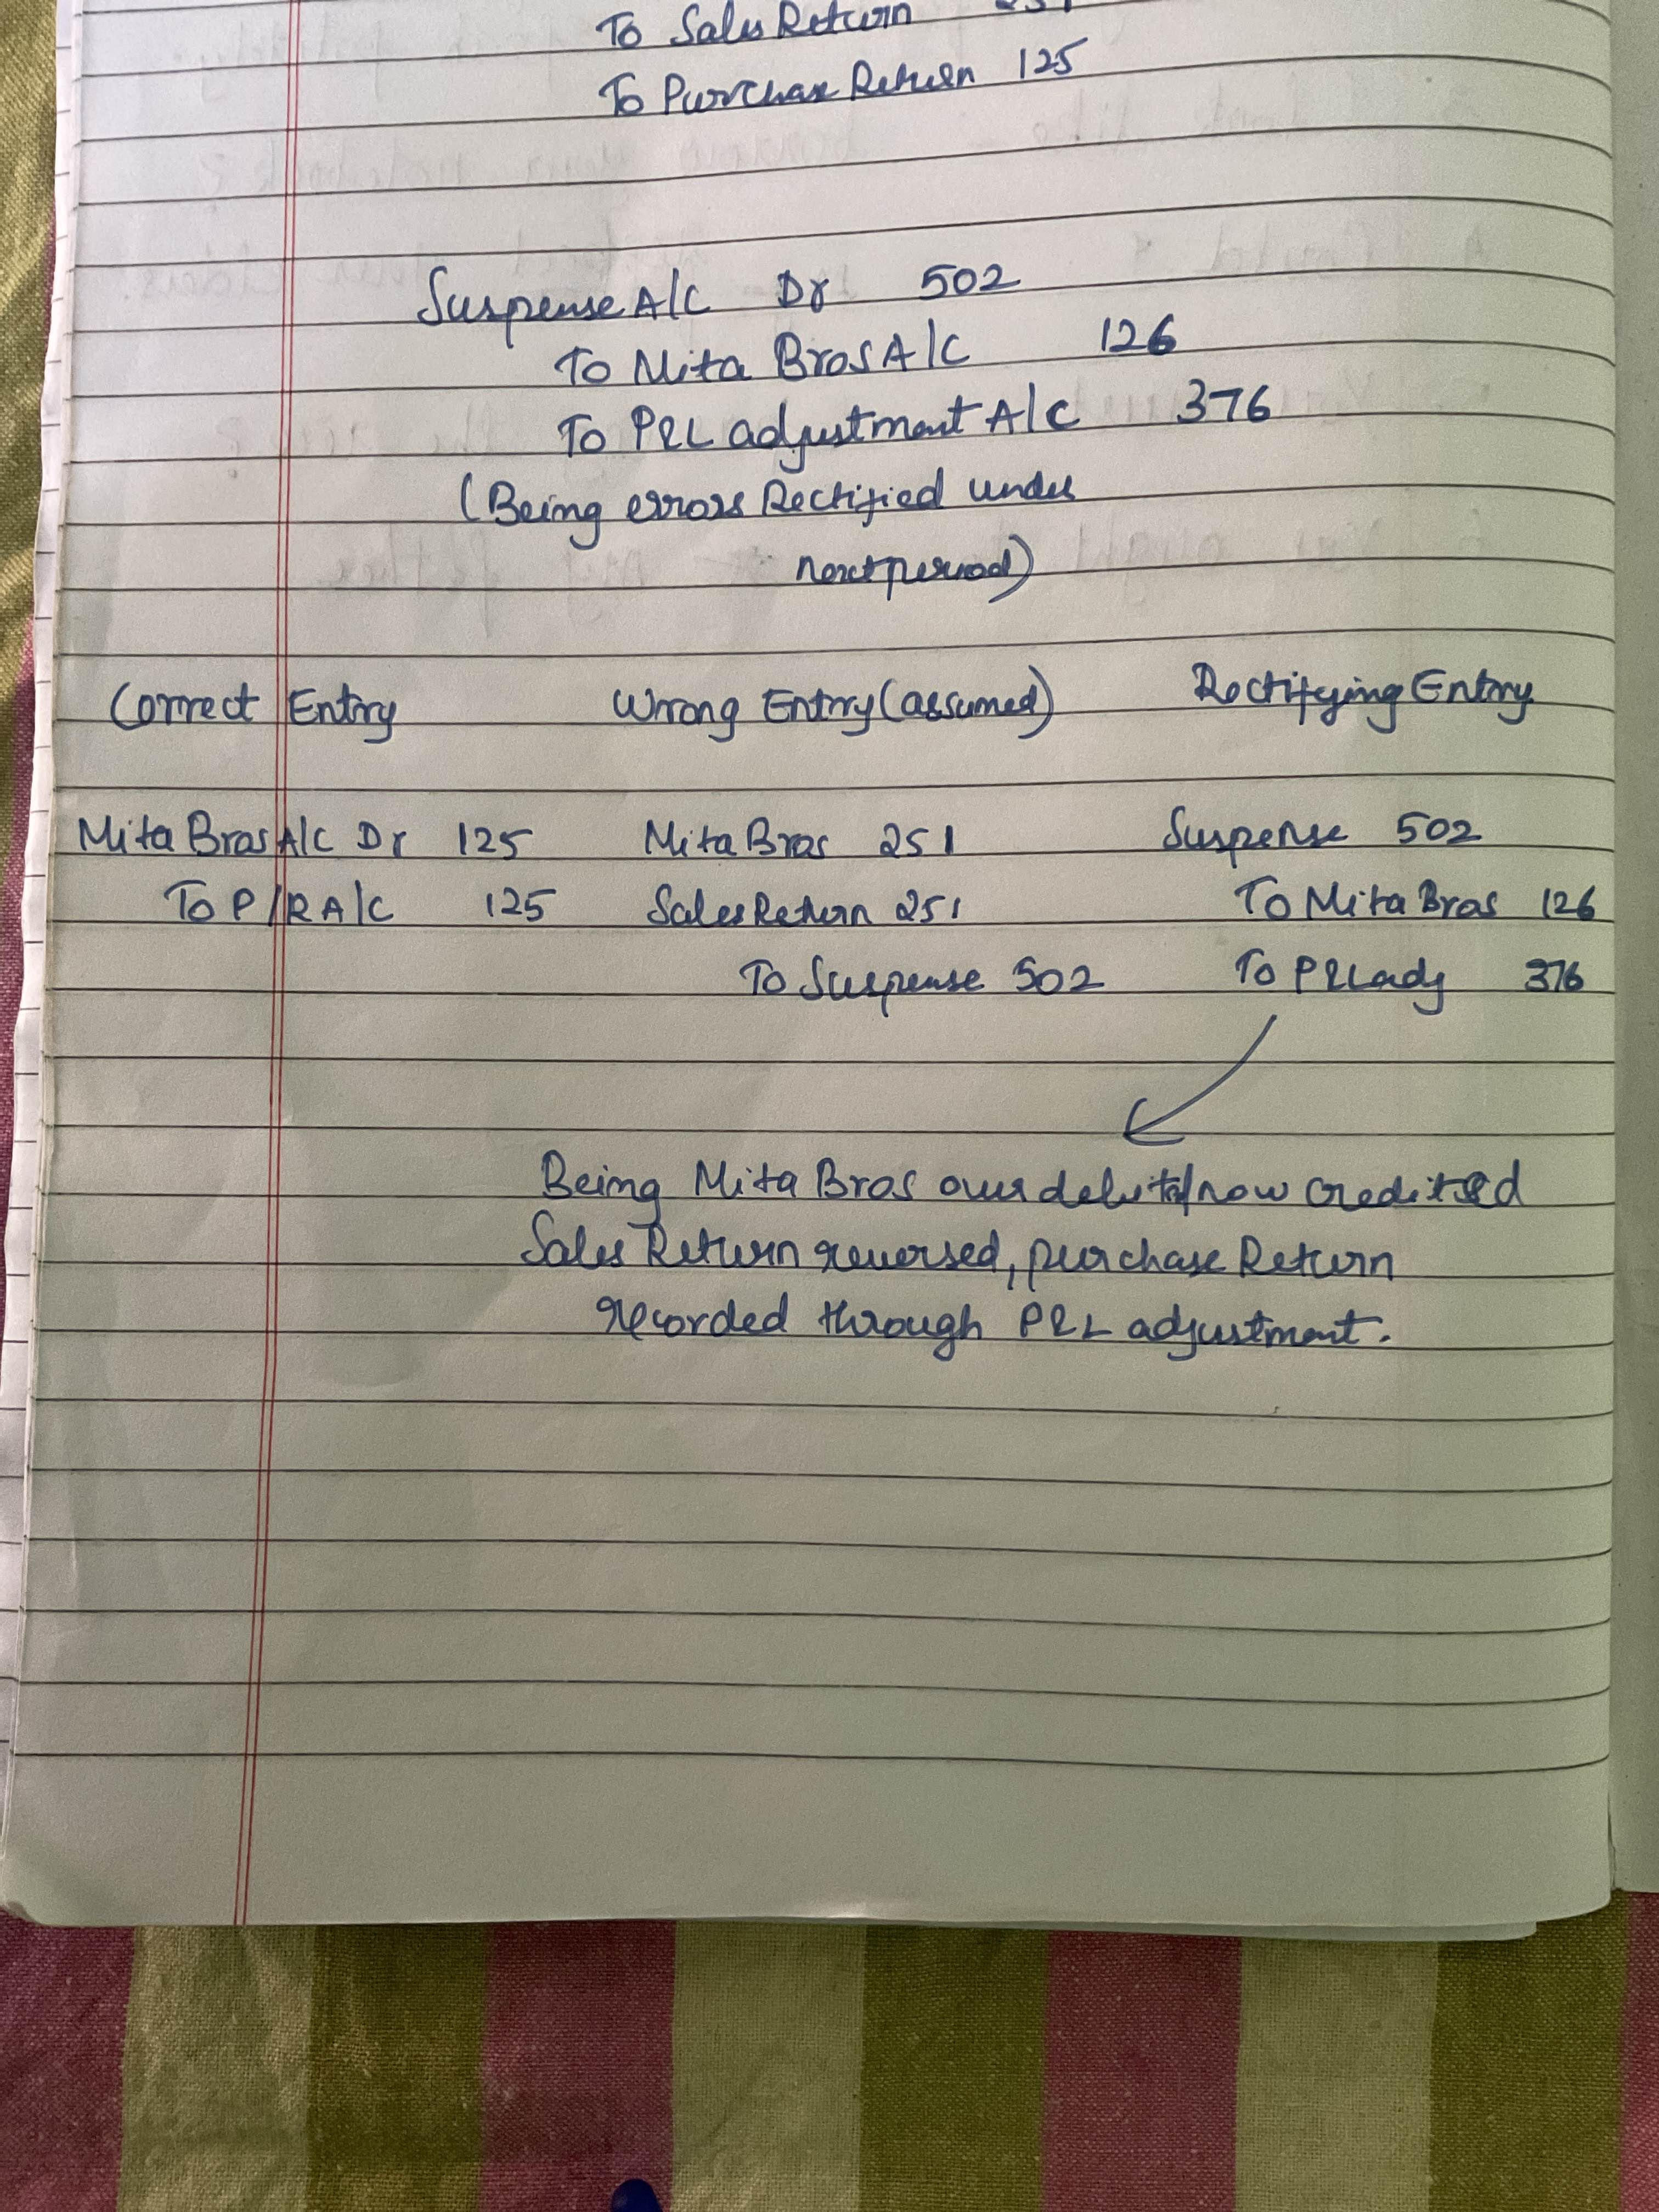 To Sales Return 251
To Purchase Return 125
Suspense A/C Dr 502
To Mita Bros A/C 126
To P&L adjustment A/C 376
(Being errors Rectified under
next period)
Correct Entry Wrong Entry (assumed) Rectifying Entry
Mita Bros A/C Dr 125 Mita Bros 251 Suspense 502
To P/R A/C 125 Sales Return 251 To Mita Bros 126
To Suspense 502 To P&L adj 376
Being Mita Bros over debited/now credited
Sales Return reversed, purchase Return
recorded through P&L adjustment.